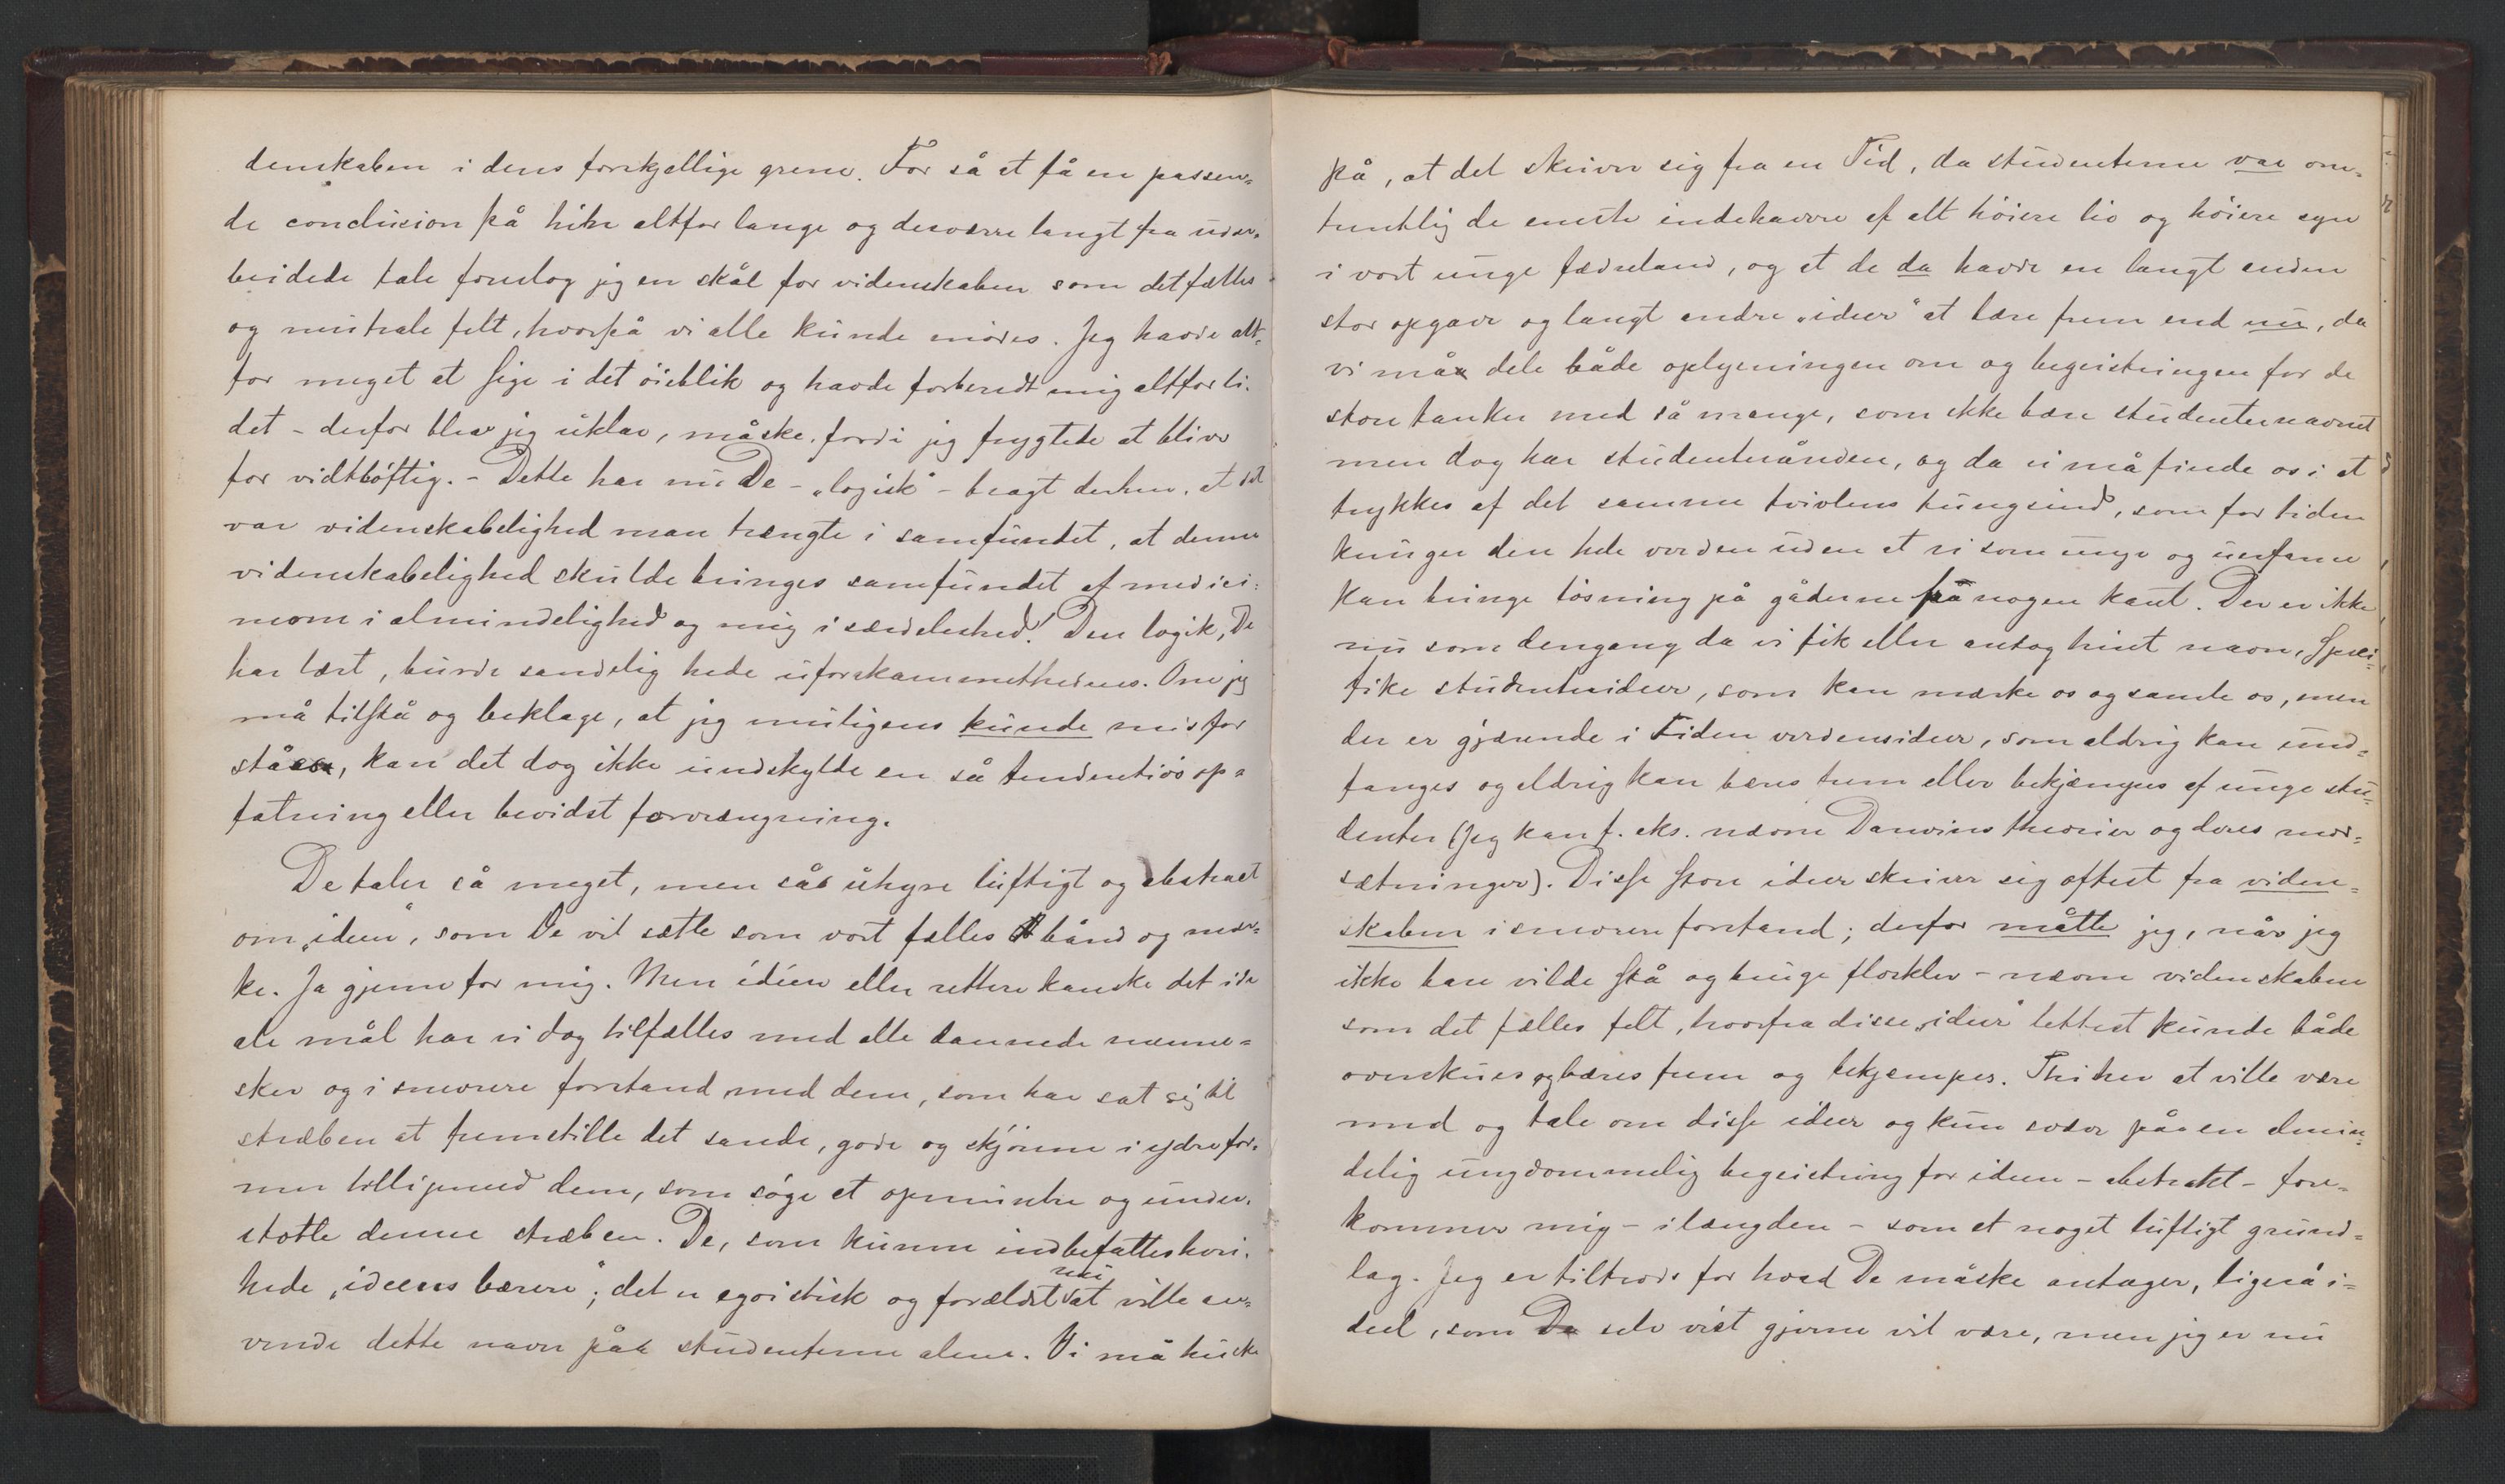 denskaben i dens forskjellige grene. For så at få en passen-
de conclusion på hin altfor lange og desværre langt fra udar-
beidede tale foreslog jeg en skål for videnskaben som det fælles
og neutrale felt, hvorpå vi alle kunde mødes. Jeg havde alt-
for meget at sige i det öieblik og havde forberedt mig altfor li-
det - derfor blev jeg uklar, måske, fordi jeg frygtede at blive
for vidtløftig. - Dette har nu De - „logisk“ - bragt derhen, at det
var videnskabelighed man trængte i samfundet, at denne
videnskabelighed skulde bringes samfundet af medici-
nerne i almindelighed og mig i særdeleshed! Den logik, De
har lært, burde sandelig hede uforskammethedens. Om jeg
må tilstå og beklage, at jeg muligens kunde misfor
ståes, kan det dog ikke undskylde en så tendentiøs op-
fatning eller bevidst forvrængning.
De taler så meget, men så uhyre luftigt og abstract
om „ideen“, som De vil sætte som vort fælles bånd og mær-
ke. Ja gjerne for mig. Men idéen eller rettere kanske det ide
ale mål har vi dog tilfælles med alle dannede menne-
sker og i snevrere forstand med dem, som har sat sig til
stræben at fremstille det sande, gode og skjønne i ydre for-
mer tilligemed dem, som søge at opmuntre og under-
støtte denne stræben. De, som kunne indbefattes heri,
hede „ideens bærere“; det er egoistisk og forældet nu at ville an-
vende dette navn på studenterne alene. Vi må huske
på, at det skriver sig fra en Tid, da studenterne var om-
trentlig de eneste indehavere af alt høiere liv og høiere syn
i vort unge fædreland, og at de da havde en langt anden
stor opgave og langt andre „ideer“ at bære frem end nu, da
vi må dele både oplysningen om og begeistringen for de
store tanker med så mange, som ikke bære studenternavnet
men dog har studenterånden, og da vi må finde os i at
trykkes af det samme tvivlens tungsind, som for tiden
kunger den hele verden uden at vi som unge og uerfarne
kan bringe løsning på gåderne på nogen kant. Der er ikke
nu som dengang da vi fik eller antog hint navn, speci-
fike studenterideer, som kan mærke os og samle os, men
der er gjærende i Tiden verdensideer, som aldrig kan und-
fanges og aldrig kan bæres frem eller bekjæmpes af unge stu-
denter (jeg kan f. eks. nævne Darwins theorier og deres mod-
sætninger). Disse store ideer skriver sig oftest fra viden-
skaben i snevrere forstand; derfor måtte jeg, når jeg
ikke bare vilde stå og bruge floskler - nævne videnskaben
som det fælles felt, hvorfra disse „ideer“ lettest kunde både
overskues og bæres frem og bekjæmpes. Thi her at ville være
med og tale om disse ideer og kun svæve på en almin-
delig ungdommelig begeistring for ideen - abstrakt - fore-
kommer mig - i længden - som et noget luftigt grund-
lag. Jeg er tiltrods for hvad De måske antager, ligeså i-
deel, som De selv vist gjerne vil være, men jeg er nu